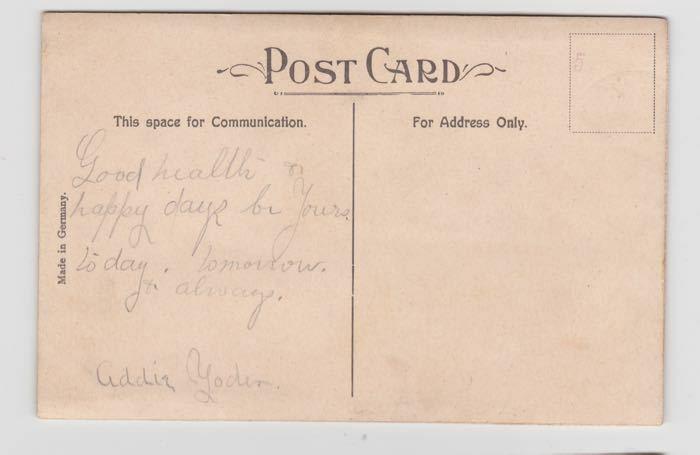 POST CARD
This space for Communication.
For Address Only.
Made in Germany.
Good health &
happy days be Yours
to day. tomorrow.
& always.
Addie Yoder.
5